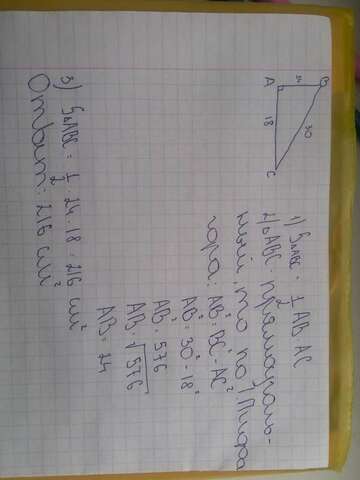 B
24
30
A
18
C
1) S△ABC = 1/2 AB·AC
2) △ABC - прямоуголь-
ный, то по т Пифа
гора: AB² = BC² - AC²
AB² = 30² - 18²
AB² = 576
AB = √576
AB = 24
3) S△ABC = 1/2 · 24 · 18 = 216 см²
Ответ: 216 см²